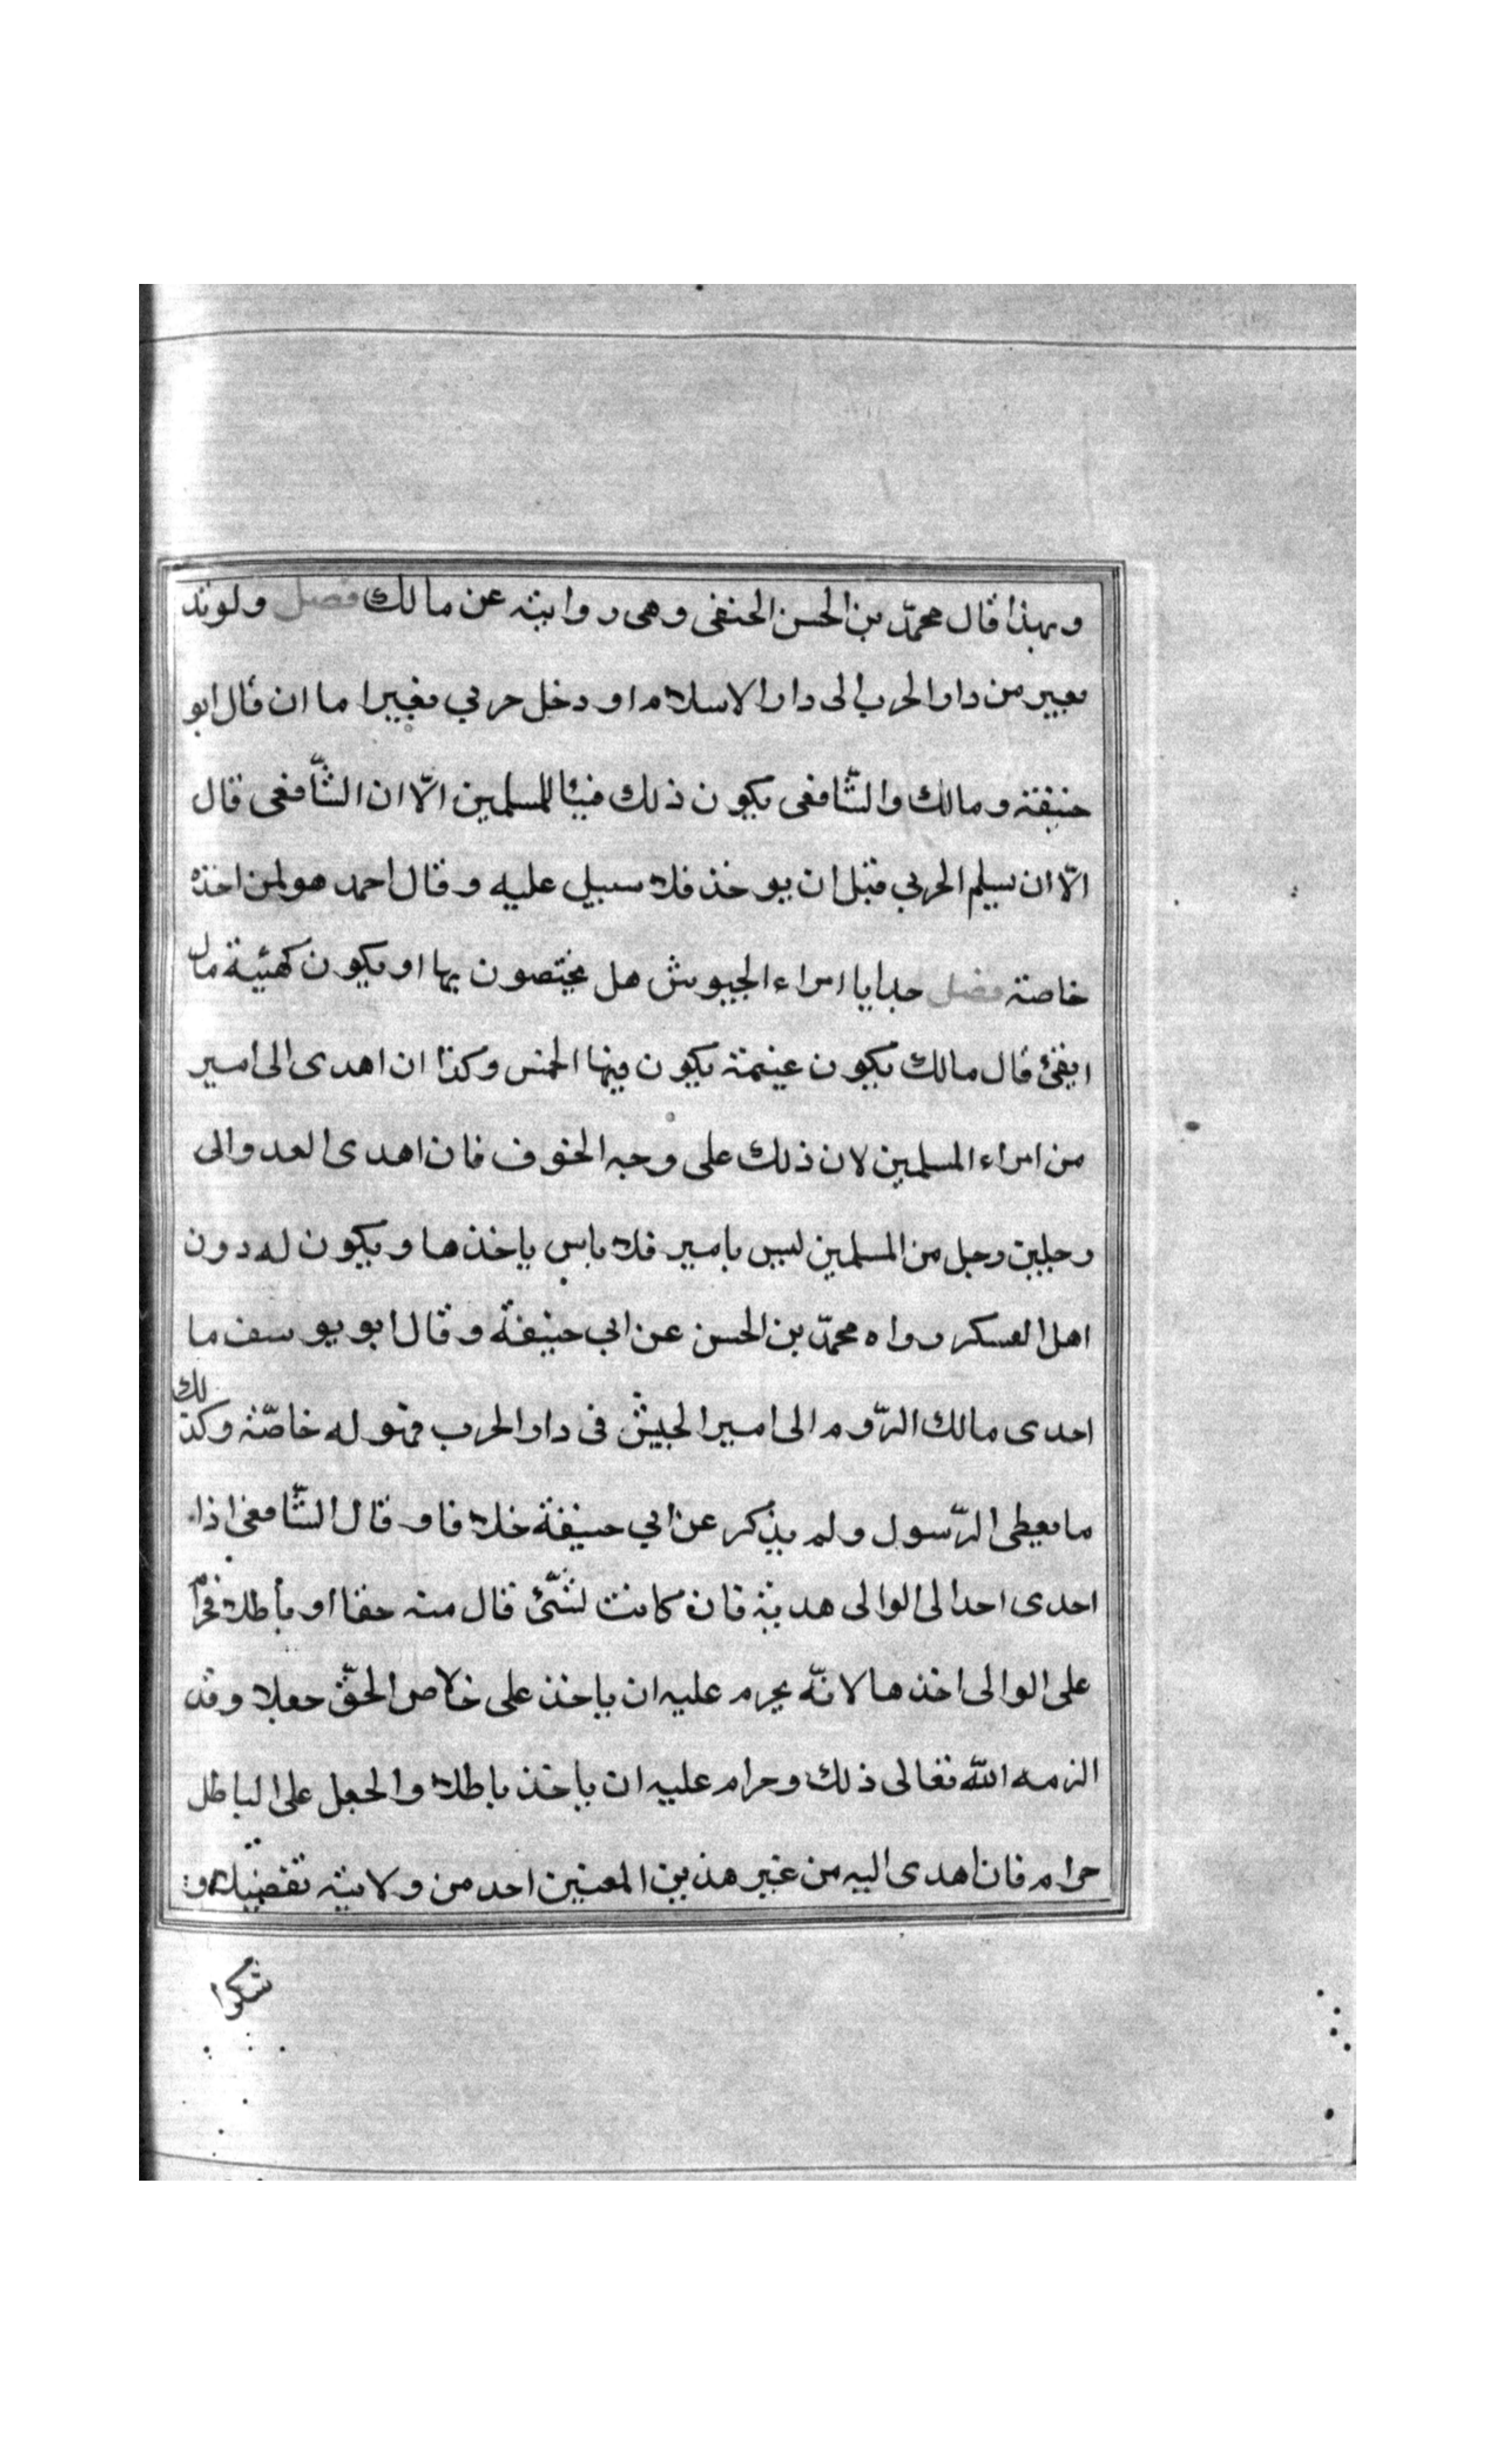 وبهذا قال محمّد بن الحسن الحنفى وهى رواية عن مالك فصل ولو ند
بعير من دار الحرب الى دار الاسلام او دخل حربي بغير امان قال ابو
حنيفة ومالك والشّافعى يكون ذلك فيئا للمسلمين الّا ان الشّافعى قال
الّا ان يسلم الحربي قبل ان يوخذ فلا سبيل عليه وقال احمد هو لمن اخذه
خاصة فصل هدايا امراء الجيوش هل يختصون بها او يكون كهيئة مال
الفئ قال مالك يكون غنيمة يكون فيها الخمس وكذا ان اهدى الى امير
من امراء المسلمين لان ذلك على وجه الخوف فان اهدى العدو الى
رجلين رجل من المسلمين ليس بامير فلا باس ياخذها ويكون له دون
اهل العسكر رواه محمّد بن الحسن عن ابى حنيفة وقال ابو يوسف ما
اهدى مالك الرّوم الى امير الجيش فى دار الحرب فهو له خاصّة وكذلك
ما يعطى الرّسول ولم يذكر عن ابي حنيفة خلافا وقال الشّافعى اذا
اهدى احد الى الوالى هدية فان كانت لشّئ قال منه حقا او باطلا فحرام
على الوالى اخذها لانّه يحرم عليه ان ياخذ على خلاص الحقّ جعلا وقد
الزمه اللّه تعالى ذلك وحرام عليه ان ياخذ باطلا والجعل على الباطل
حرام فان اهدى اليه من غير هذين المعنيين احد من ولايته تفضيلا و
شكرا